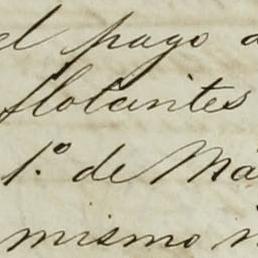 el pago d
flotantes
1.º de Ma
mismo i